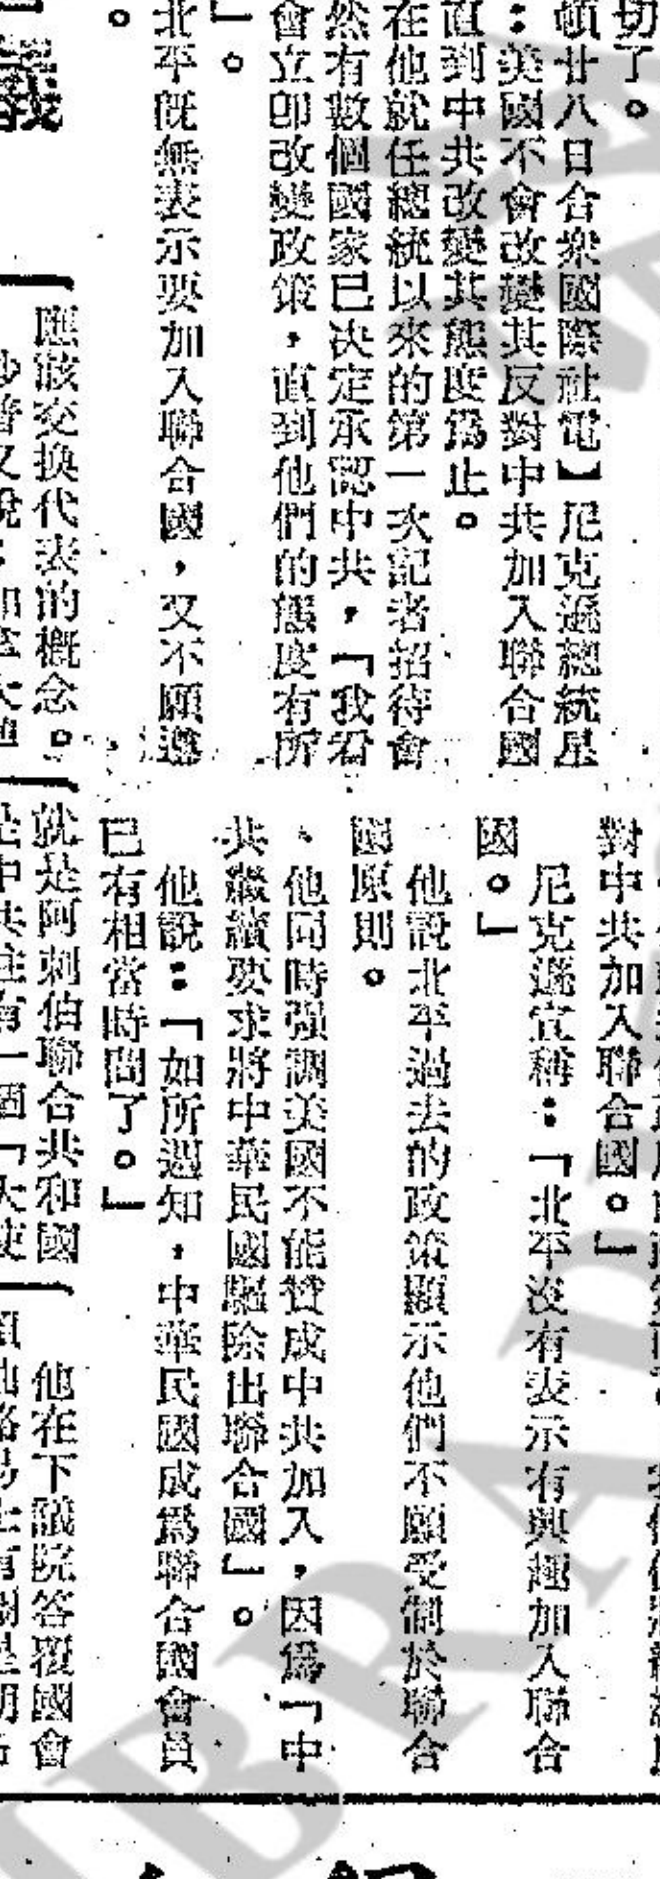 切了。
頓廿八日合衆國際社電】尼克遜總統星
：美國不會改變其反對中共加入聯合國
直到中共改變其態度爲止。
在他就任總統以來的第一次記者招待會
然有數個國家已決定承認中共，「我看
會立卽改變政策，直到他們的態度有所
」。
北平旣無表示要加入聯合國，又不願遵
。
對中共加入聯合國。」
尼克遜宣稱：「北平沒有表示有興趣加入聯合
國。」
他說北平過去的政策顯示他們不願受制於聯合
國原則。
他同時强調美國不能贊成中共加入，因爲「中
共繼續要求將中華民國驅除出聯合國」。
他說：「如所週知，中華民國成爲聯合國會員
已有相當時間了。」
義
應該交換代表的概念。
就是阿剌伯聯合共和國
他在下議院答覆國會